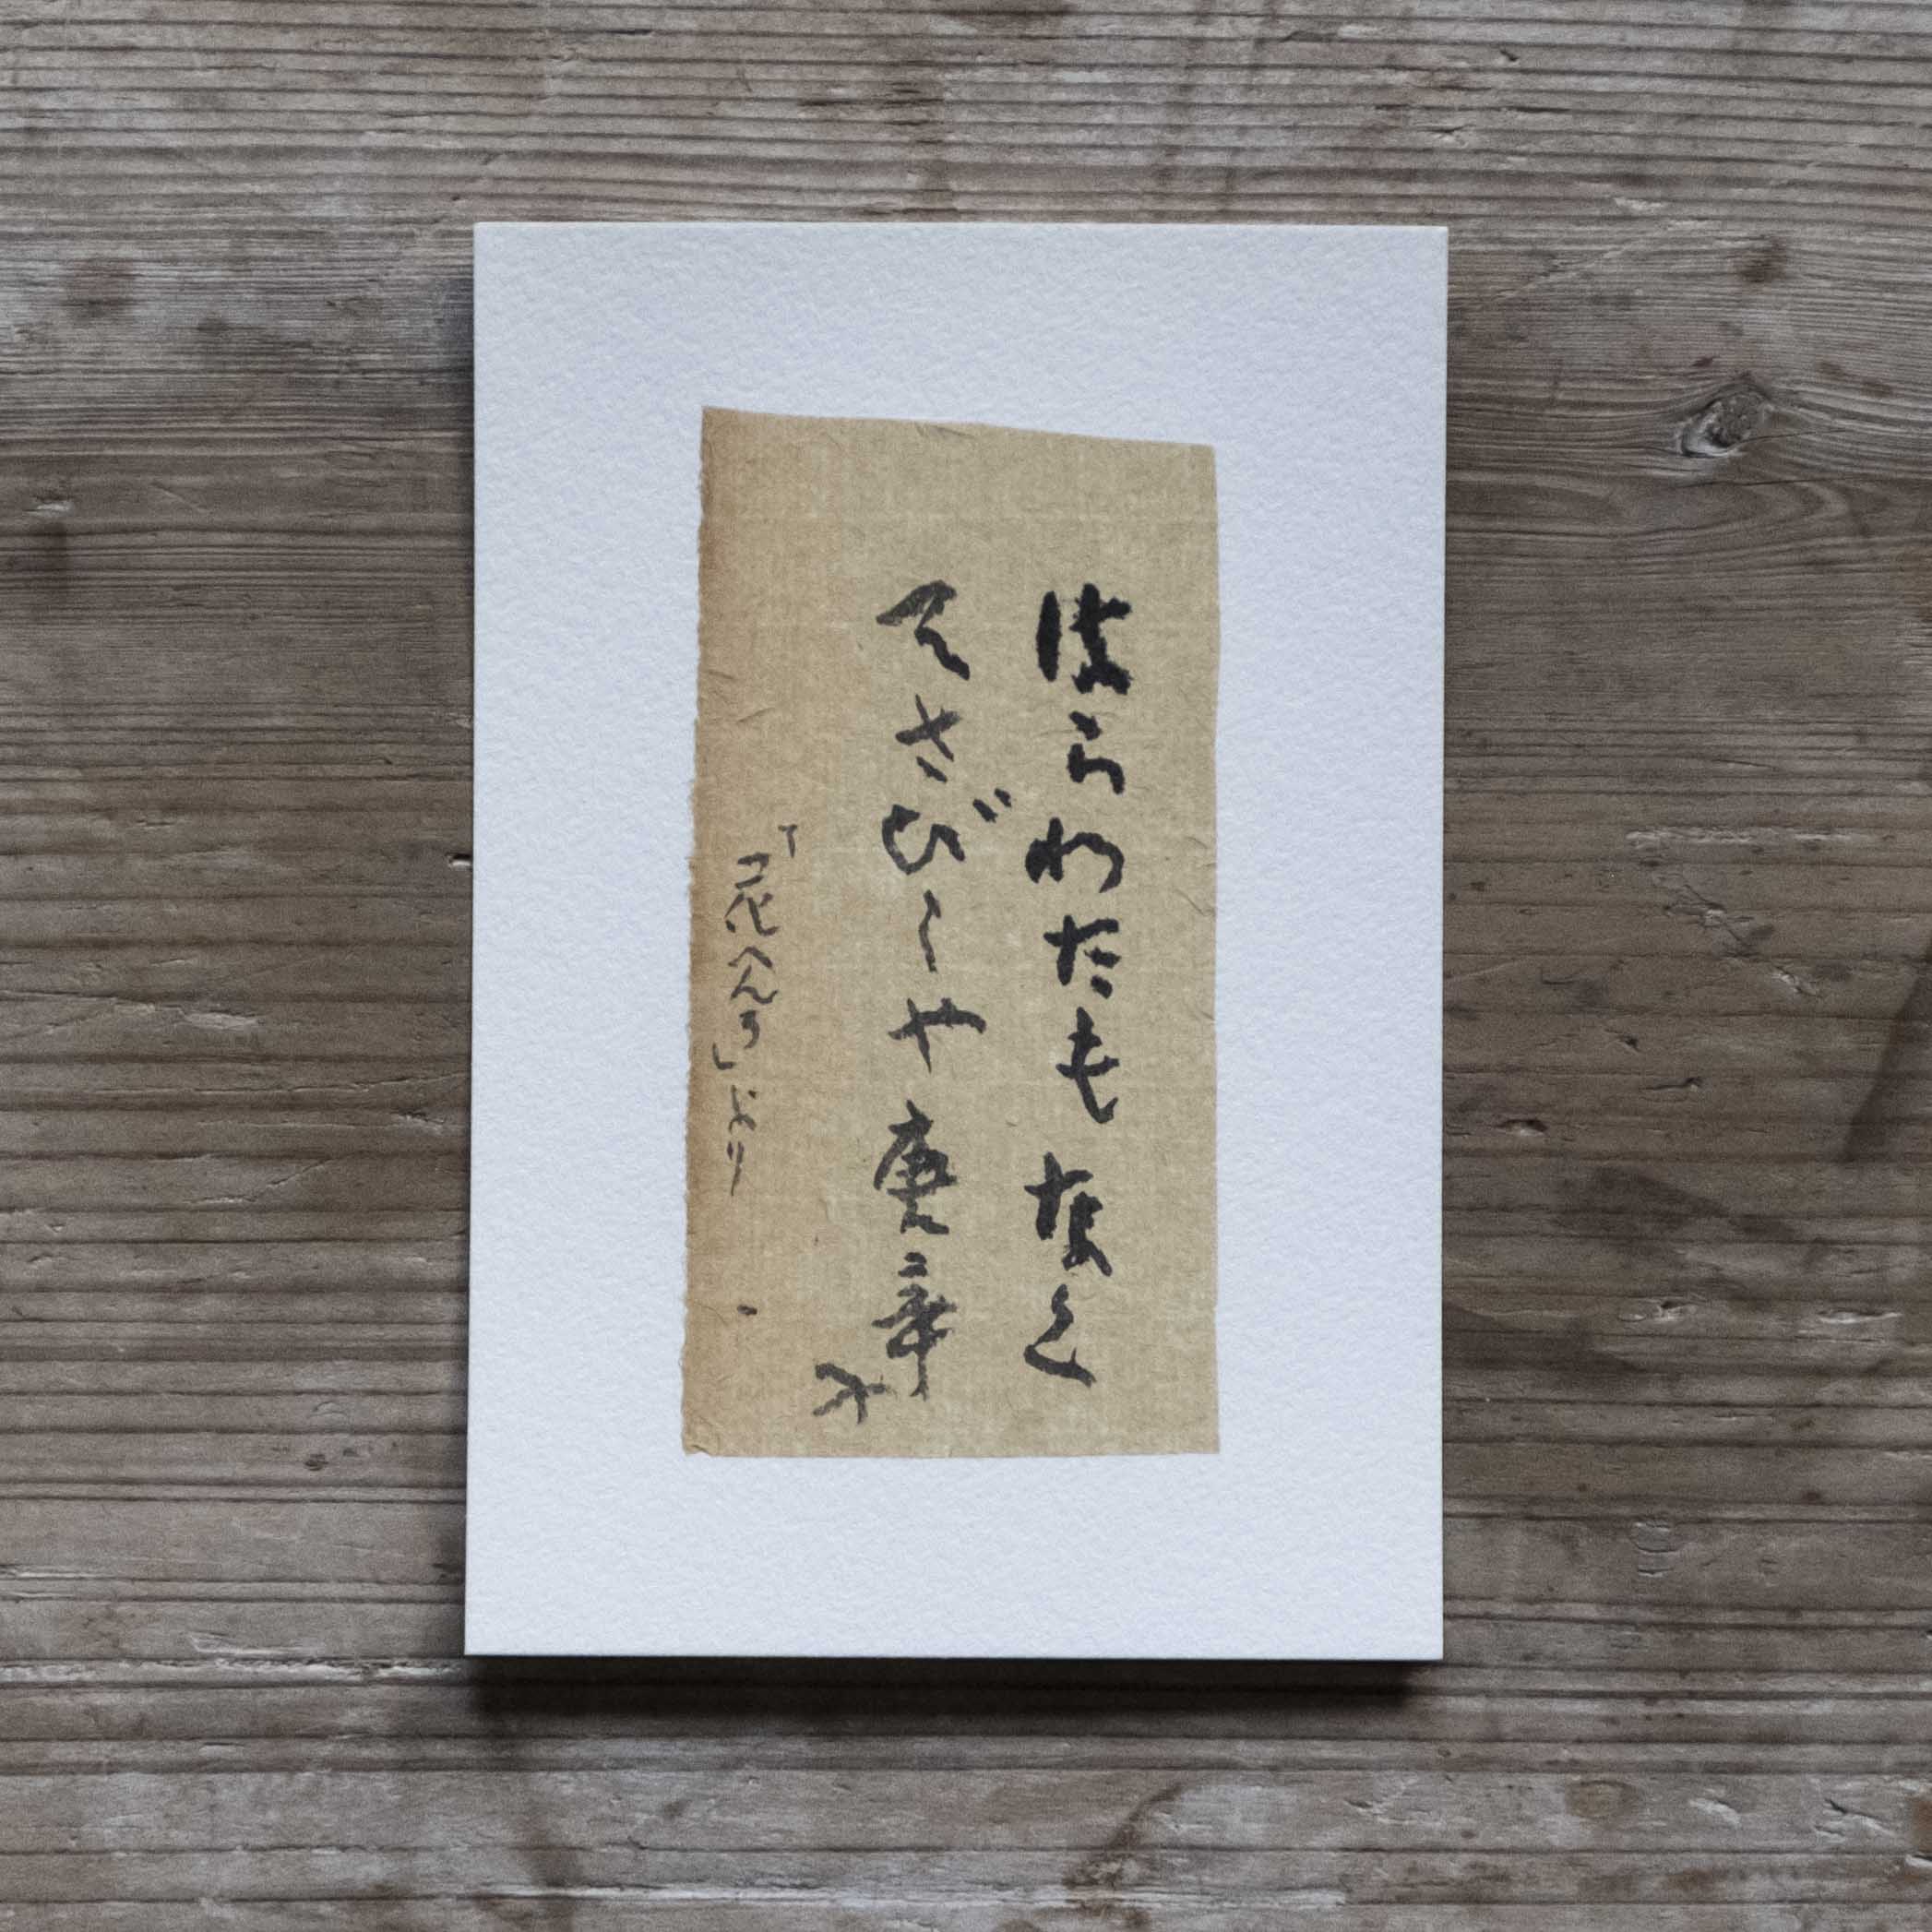 はらわたもなく
てさびしや唐辛
子
「花へんろ」より